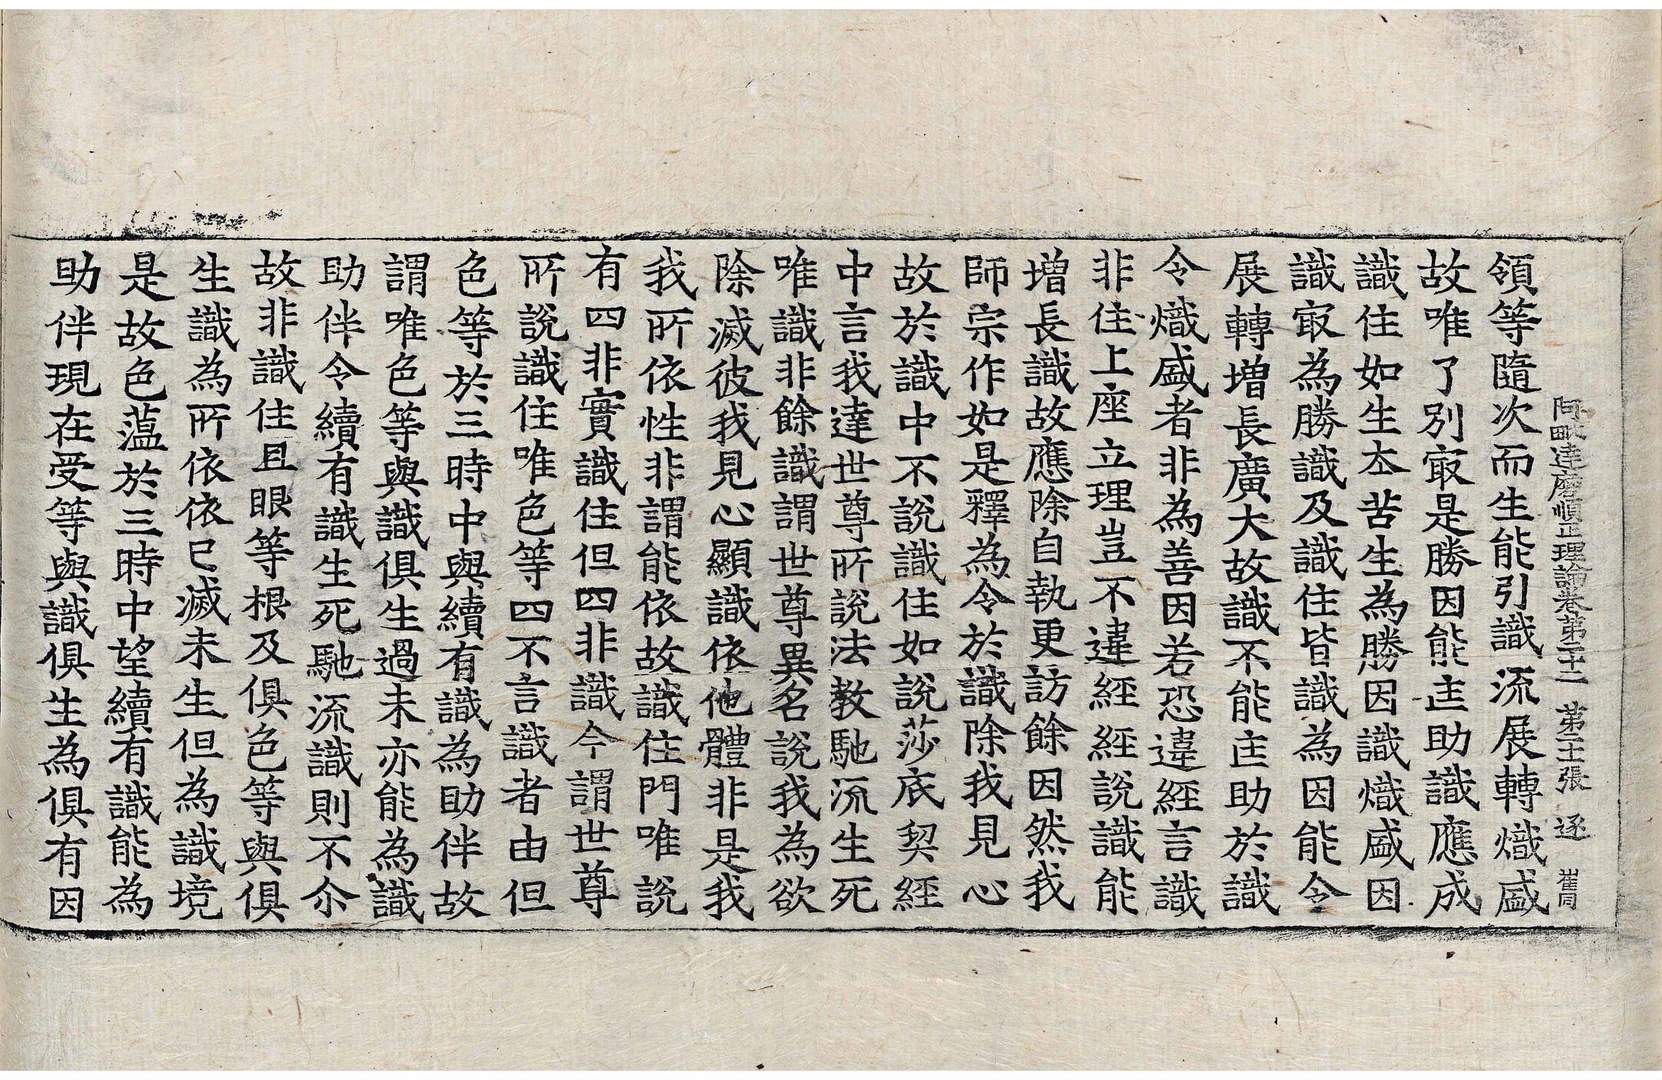 阿毗達磨順正理論卷第二十二 第張 逐 崔同
領等隨次而生能引識流展轉熾盛
故唯了別㝡是勝因能匡助識應成
識住如生苦生為勝因識熾盛因
識㝡為勝識及識住皆識為因能令
展轉增長廣大故識不能匡助於識
令熾盛者非為善因若恐違經言識
非住上座立理豈不違經經說識能
增長識故應除自執更訪餘因然我
師宗作如是釋為令於識除我見心
故於識中不說識住如說莎底契經
中言我達世尊所說法教馳流生死
唯識非餘識謂世尊異名說我為欲
除滅彼我見心顯識依他體非是我
我所依性非謂能依故識住門唯說
有四非實識住但四非識今謂世尊
所說識住唯色等四不言識者由但
色等於三時中與續有識為助伴故
謂唯色等與識俱生過未亦能為識
助伴令續有識生死馳流識則不尒
故非識住且眼等根及俱色等與俱
生識為所依依已滅未生但為識境
是故色薀於三時中望續有識能為
助伴現在受等與識俱生為俱有因